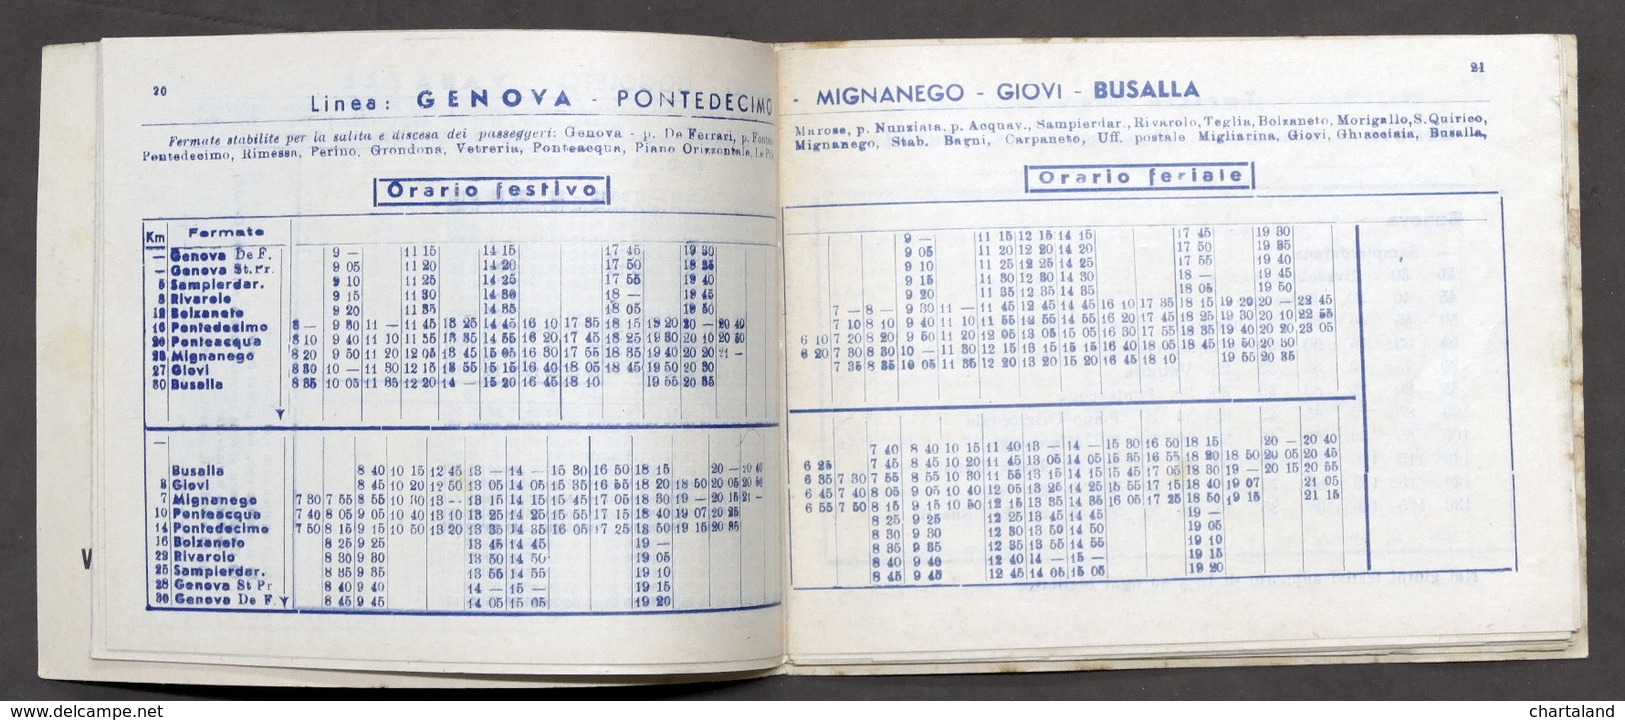 20
Linea: GENOVA - PONTEDECIMO
Fermate stabilite per la salita e discesa dei passeggeri: Genova - p. De Ferrari, p.
Pontedecimo, Rimessa, Perino, Grondona, Vetreria, Ponteacqua, Piano Orizzontale,
Orario festivo
Km Fermate
— Genova De F. 9 — 11 15 14 15 17 45 19 30
— Genova St.Pr. 9 05 11 20 14 20 17 50 19 35
5 Sampierdar. 9 10 11 25 14 25 17 55 19 40
8 Rivarolo 9 15 11 30 14 30 18 — 19 45
12 Bolzaneto 9 20 11 35 14 35 18 05 19 50
16 Pontedecimo 8 — 9 30 11 — 11 45 13 25 14 45 16 10 17 35 18 15 19 20 20 — 20 40
20 Ponteacqua 8 10 9 40 11 10 11 55 13 35 14 55 16 20 17 45 18 25 19 30 20 10 20 50
23 Mignanego 8 20 9 50 11 20 12 05 13 45 15 05 16 30 17 55 18 35 19 40 20 20 21 —
27 Giovi 8 30 10 — 11 30 12 15 13 55 15 15 16 40 18 05 18 45 19 50 20 30
30 Busalla 8 35 10 05 11 35 12 20 14 — 15 20 16 45 18 10 19 55 20 35
— Busalla 8 40 10 15 12 45 13 — 14 — 15 30 16 50 18 15 20 — 20 40
3 Giovi 8 45 10 20 12 50 13 05 14 05 15 35 16 55 18 20 18 50 20 05 20 50
7 Mignanego 7 30 7 55 8 55 10 30 13 — 13 15 14 15 15 45 17 05 18 30 19 — 20 15 21 —
10 Ponteacqua 7 40 8 05 9 05 10 40 13 10 13 25 14 25 15 55 17 15 18 40 19 07 20 25
14 Pontedecimo 7 50 8 15 9 15 10 50 13 20 13 35 14 35 16 05 17 25 18 50 19 15 20 35
16 Bolzaneto 8 25 9 25 13 45 14 45 19 —
22 Rivarolo 8 30 9 30 13 50 14 50 19 05
25 Sampierdar. 8 35 9 35 13 55 14 55 19 10
28 Genova St Pr 8 40 9 40 14 — 15 — 19 15
30 Genova De F. 8 45 9 45 14 05 15 05 19 20
21
- MIGNANEGO - GIOVI - BUSALLA
Marose, p. Nunziata, p. Acquav., Sampierdar., Rivarolo, Teglia, Bolzaneto, Morigallo, S. Quirico,
Mignanego, Stab. Bagni, Carpaneto, Uff. postale Migliarina, Giovi, Ghiacciaia, Busalla,
Orario feriale
9 — 11 15 12 15 14 15 17 45 19 30
9 05 11 20 12 20 14 20 17 50 19 35
9 10 11 25 12 25 14 25 17 55 19 40
9 15 11 30 12 30 14 30 18 — 19 45
9 20 11 35 12 35 14 35 18 05 19 50
7 — 8 — 9 30 11 — 11 45 12 45 14 45 16 10 17 35 18 15 19 20 20 — 22 45
7 10 8 10 9 40 11 10 11 55 12 55 14 55 16 20 17 45 18 25 19 30 20 10 22 55
6 10 7 20 8 20 9 50 11 20 12 05 13 05 15 05 16 30 17 55 18 35 19 40 20 20 23 05
6 20 7 30 8 30 10 — 11 30 12 15 13 15 15 15 16 40 18 05 18 45 19 50 20 30
7 35 8 35 10 05 11 35 12 20 13 20 15 20 16 45 18 10 19 55 20 35
7 40 8 40 10 15 11 40 13 — 14 — 15 30 16 50 18 15 20 — 20 40
6 25 7 45 8 45 10 20 11 45 13 05 14 05 15 35 16 55 18 20 18 50 20 05 20 45
6 35 7 30 7 55 8 55 10 30 11 55 13 15 14 15 15 45 17 05 18 30 19 — 20 15 20 55
6 45 7 40 8 05 9 05 10 40 12 05 13 25 14 25 15 55 17 15 18 40 19 07 21 05
6 55 7 50 8 15 9 15 10 50 12 15 13 35 14 35 16 05 17 25 18 50 19 15 21 15
8 25 9 25 12 25 13 45 14 45 19 —
8 30 9 30 12 30 13 50 14 50 19 05
8 35 9 35 12 35 13 55 14 55 19 10
8 40 9 40 12 40 14 — 15 — 19 15
8 45 9 45 12 45 14 05 15 05 19 20
V
www.delcampe.net
chartaland